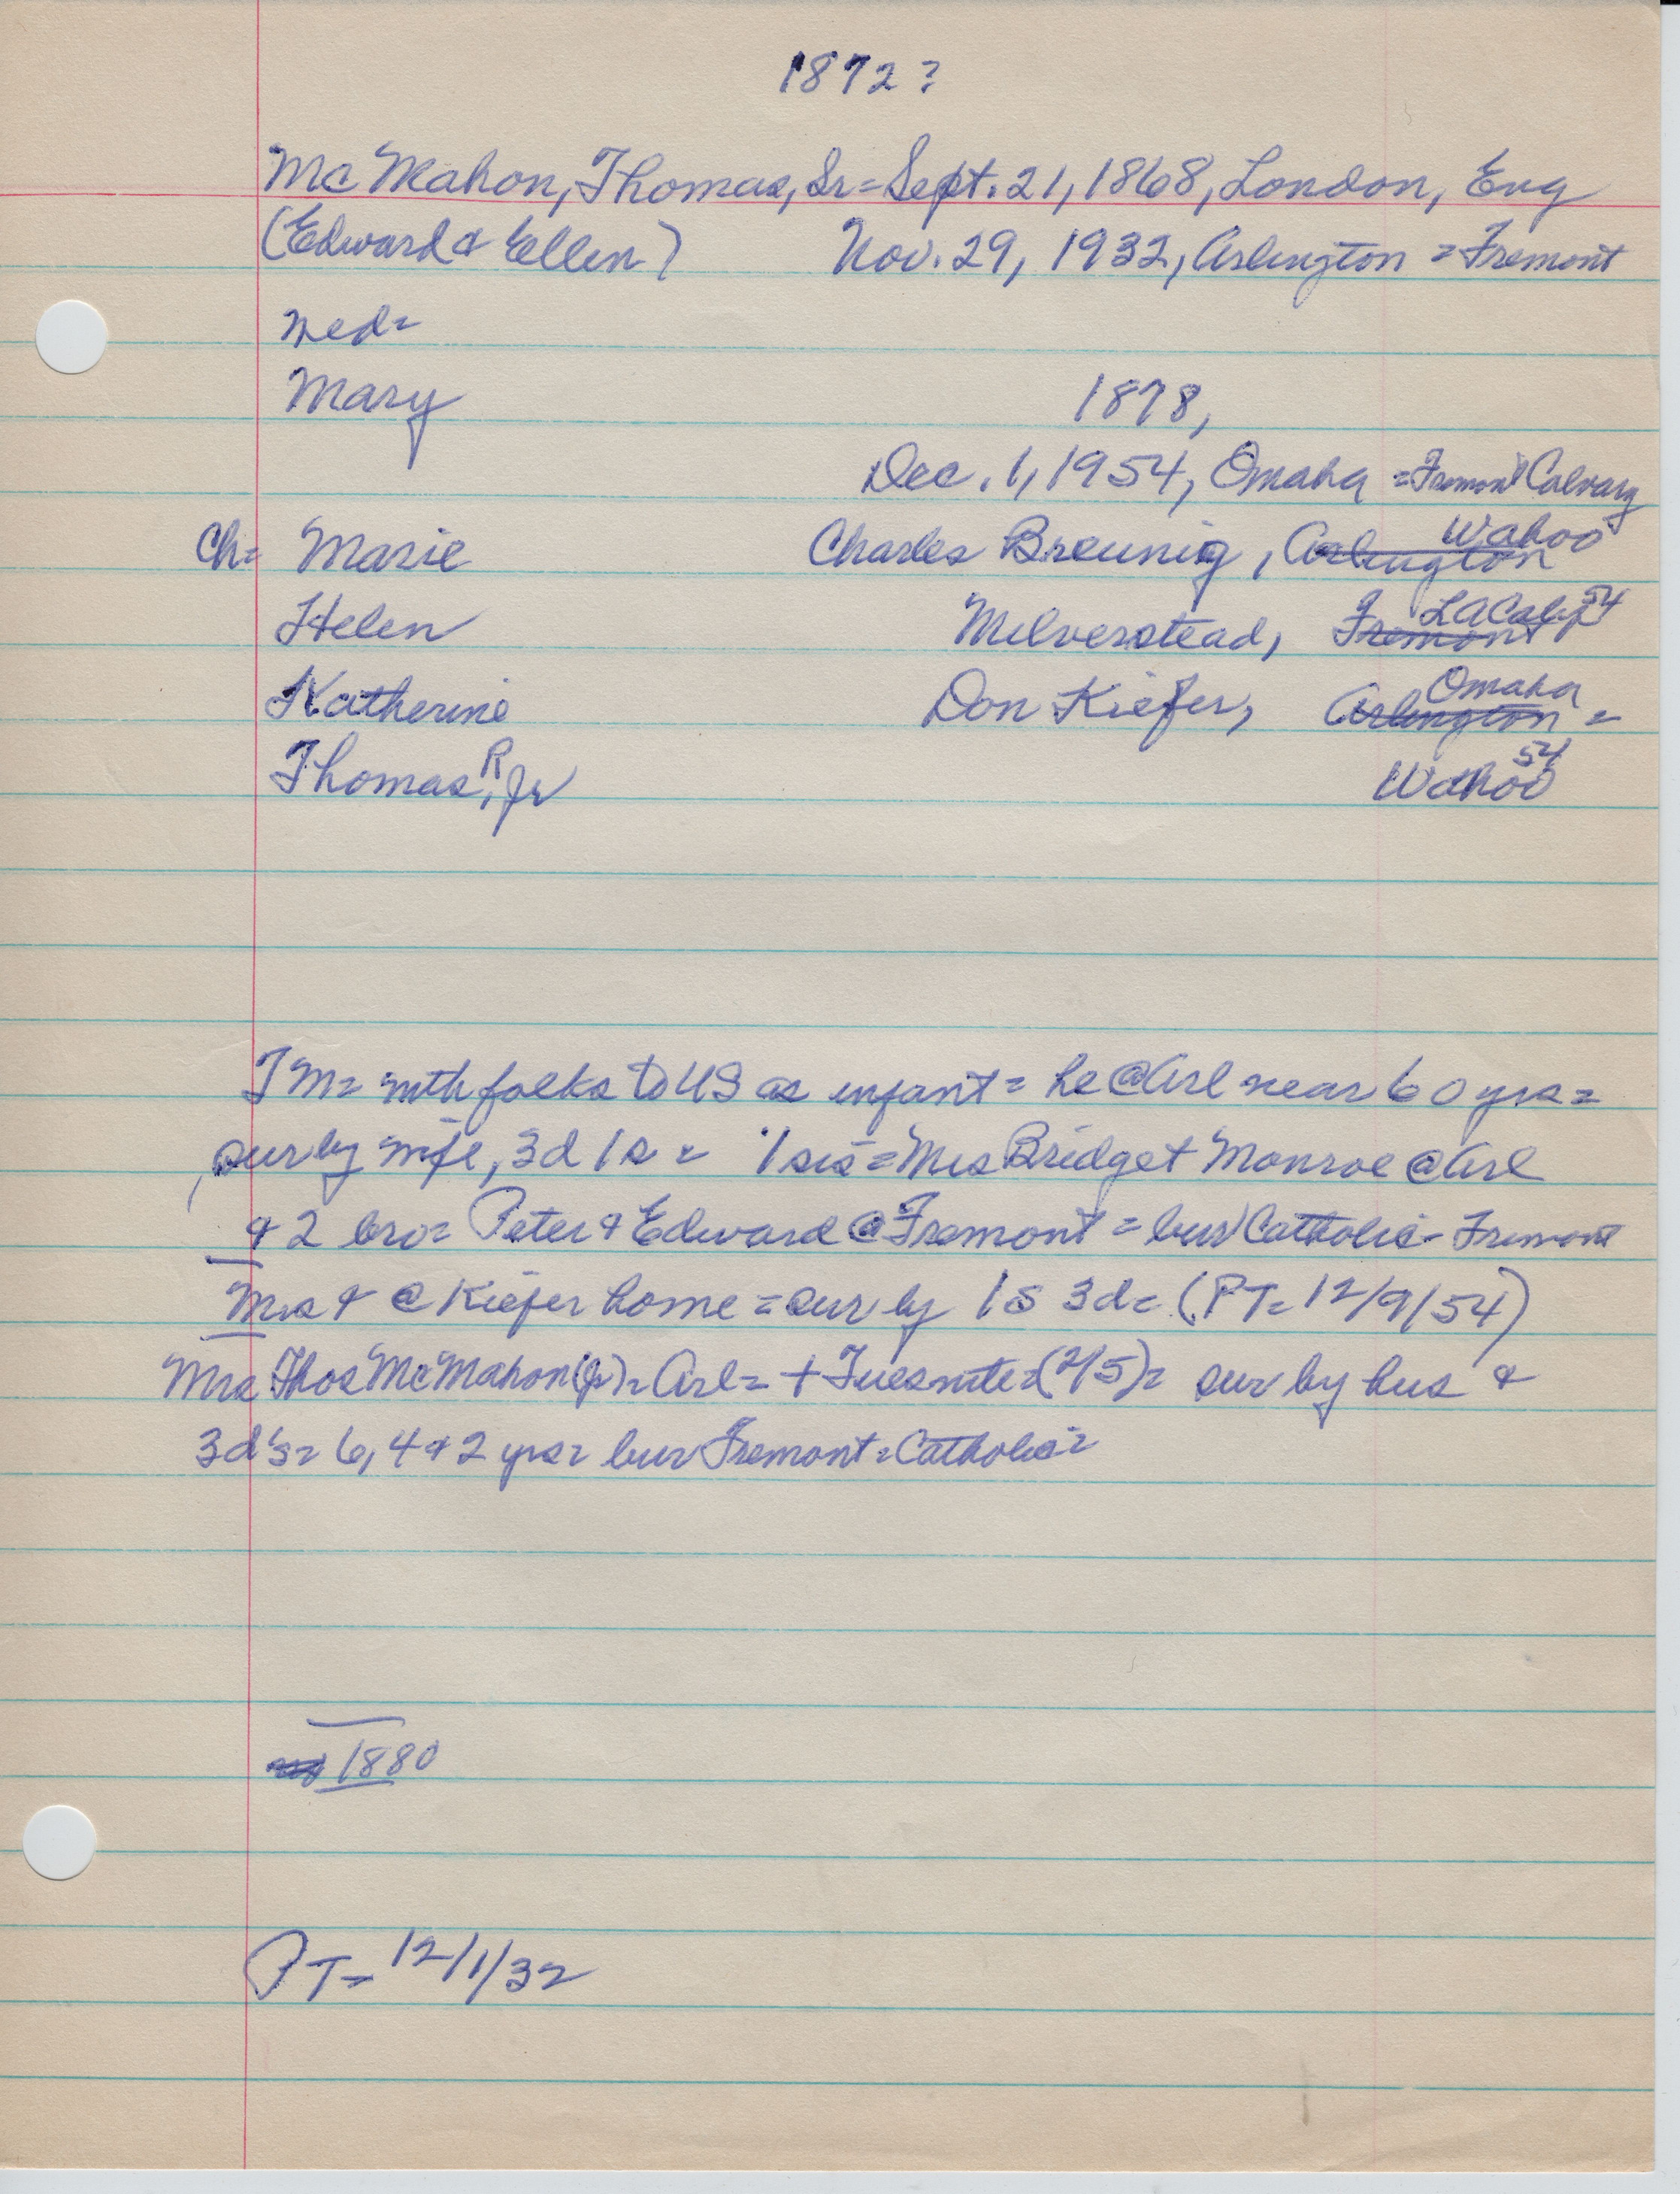 1872?
McMahon, Thomas, Sr = Sept. 21, 1868, London, Eng
(Edward & Ellen) Nov. 29, 1932, Arlington = Fremont
wed =
Mary 1878,
Dec. 1, 1954, Omaha = Fremont Calvary
Ch = Marie Charles Breunig, Arlington Wahoo
Helen Milverstead, Fremont LA Calif 54
Katherine Don Kiefer, Arlington Omaha =
Thomas, R Jr Wahoo 54
TM = with folks to US as infant = he @ Arl near 60 yrs =
sur by wife, 3d 1s = 1 sis = Mrs Bridget Monroe @ Arl
& 2 bro = Peter & Edward @ Fremont = bur Catholic - Fremont
Mrs + @ Kiefer home = sur by 1s 3d = (PT = 12/9/54)
Mrs Thos McMahon (Jr) = Arl = + Tues nite = (2/5) = sur by hus &
3 d's = 6, 4 & 2 yrs = bur Fremont = Catholic =
1880
PT = 12/1/32